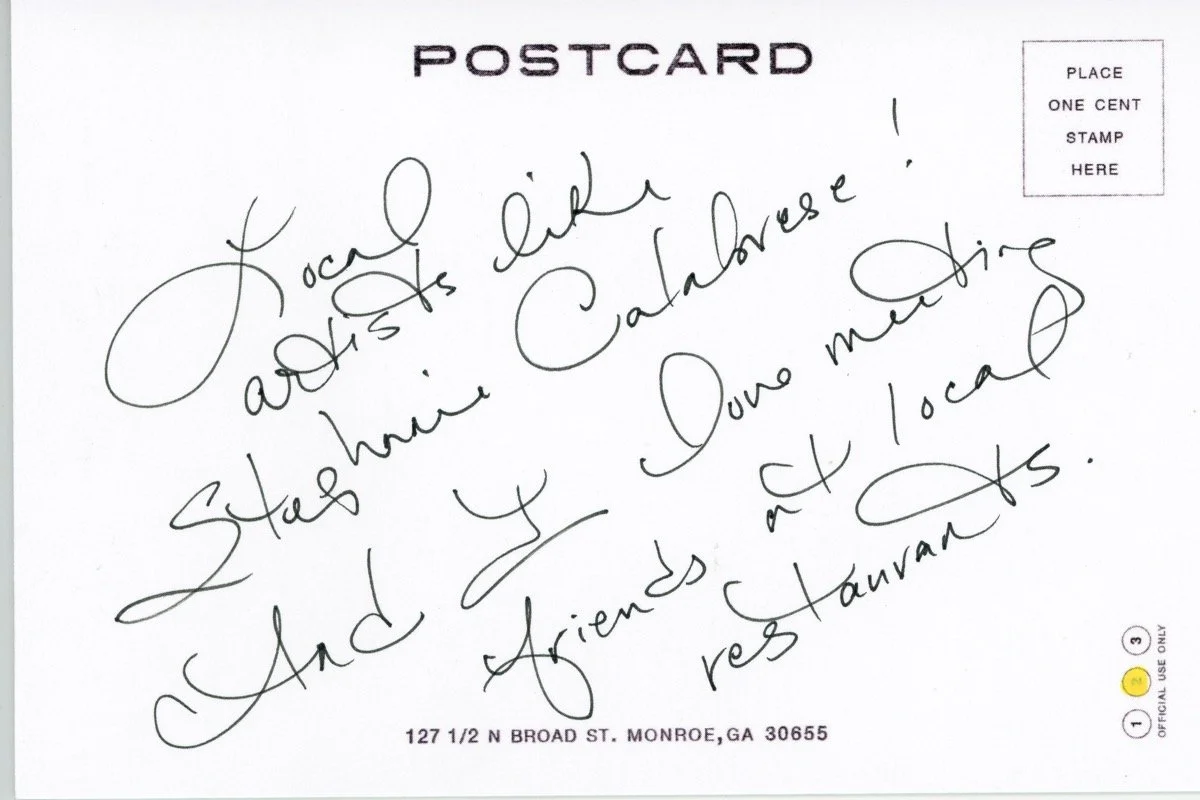 POSTCARD
PLACE
ONE CENT
STAMP
HERE
Local
artists like
Stephanie Calabrese!
And I love meeting
friends at local
restaurants.
127 1/2 N BROAD ST. MONROE, GA 30655
1 2 3
OFFICIAL USE ONLY